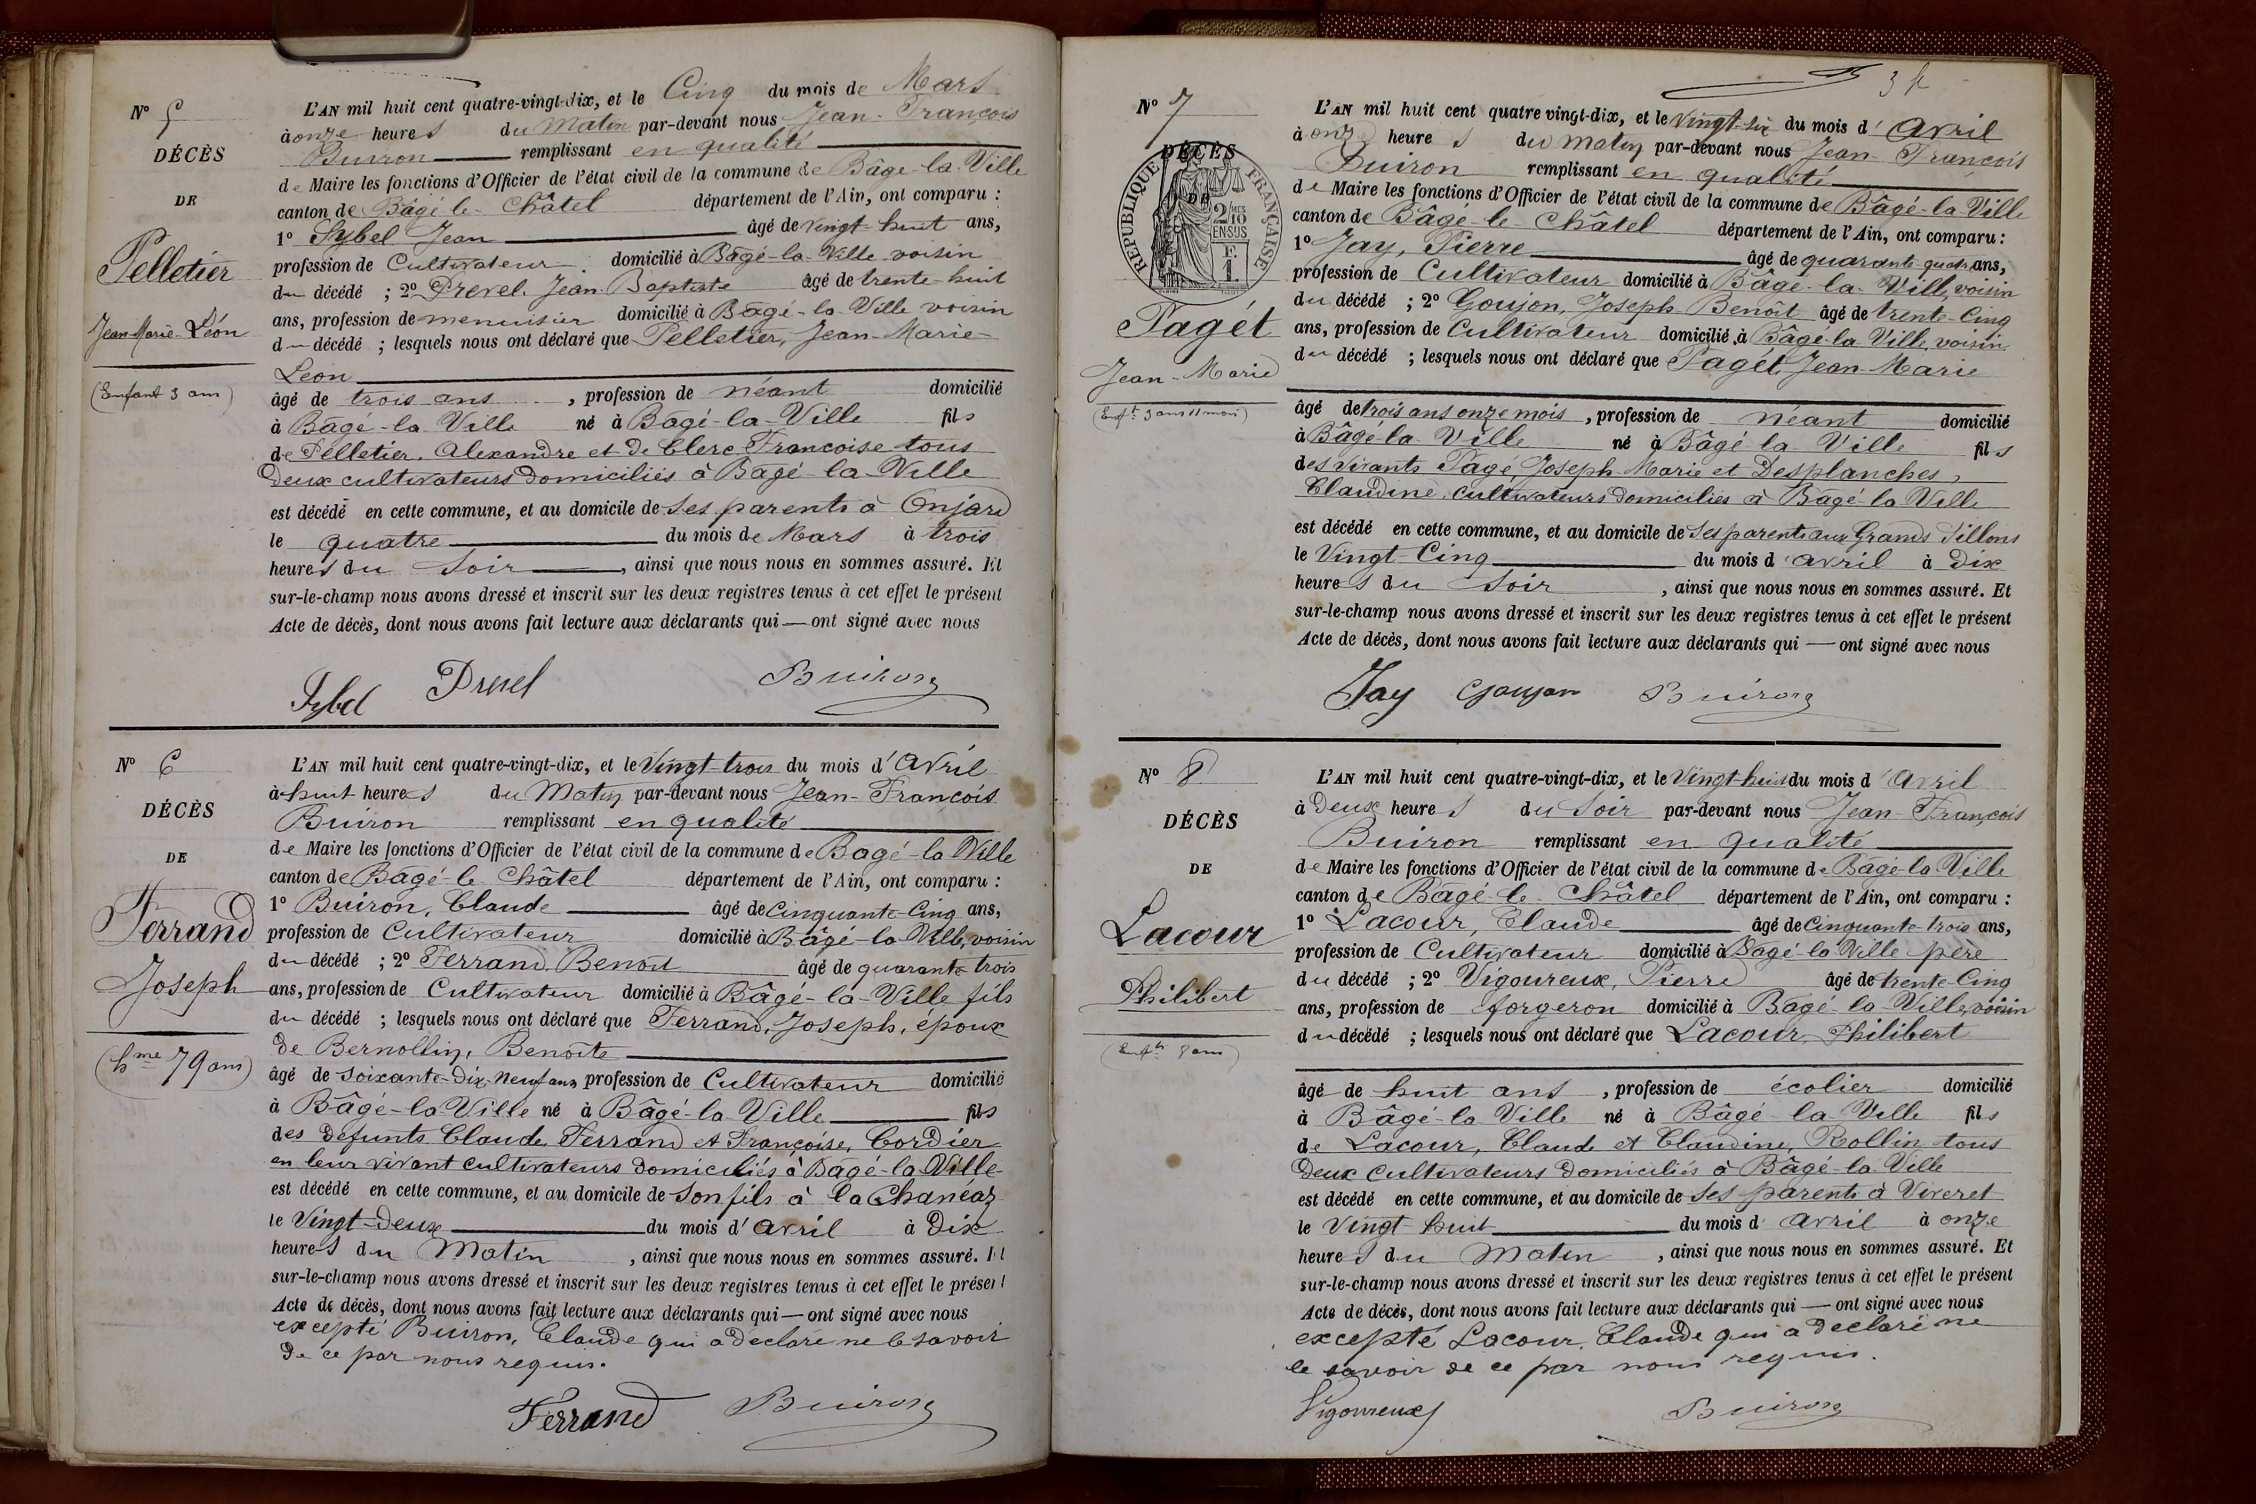 N° 5
DÉCÈS
DE
Pelletier
Jean-Marie-Léon
(Enfant 3 ans)
L'AN mil huit cent quatre-vingt-dix, et le Cinq du mois de Mars
à onze heures du Matin par-devant nous Jean-François
Buiron remplissant en qualité
de Maire les fonctions d'Officier de l'état civil de la commune de Bâgé-la-Ville
canton de Bâgé-le-Châtel département de l'Ain, ont comparu :
1° Sybel Jean âgé de vingt-huit ans,
profession de Cultivateur domicilié à Bâgé-la-Ville voisin
du décédé ; 2° Prevel, Jean-Baptiste âgé de trente-huit
ans, profession de menuisier domicilié à Bâgé-la-Ville voisin
du décédé ; lesquels nous ont déclaré que Pelletier, Jean-Marie-
Leon
âgé de trois ans, profession de néant domicilié
à Bâgé-la-Ville né à Bâgé-la-Ville fils
de Pelletier, Alexandre et de Clerc Françoise tous
Deux cultivateurs Domiciliés à Bâgé-la-Ville
est décédé en cette commune, et au domicile de ses parents à Onjard
le quatre du mois de Mars à trois
heures du Soir, ainsi que nous nous en sommes assuré. Et
sur-le-champ nous avons dressé et inscrit sur les deux registres tenus à cet effet le présent
Acte de décès, dont nous avons fait lecture aux déclarants qui — ont signé avec nous
Sybel Prevel Buiron
N° 6
DÉCÈS
DE
Ferrand
Joseph
(hme 79 ans)
L'AN mil huit cent quatre-vingt-dix, et le Vingt-trois du mois d'Avril
à huit heures du Matin par-devant nous Jean-François
Buiron remplissant en qualité
de Maire les fonctions d'Officier de l'état civil de la commune de Bagé-la-Ville
canton de Bâgé-le-Châtel département de l'Ain, ont comparu :
1° Buiron, Claude âgé de Cinquante-Cinq ans,
profession de Cultivateur domicilié à Bâgé-la-Ville, voisin
du décédé ; 2° Ferrand, Benoît âgé de quarante-trois
ans, profession de Cultivateur domicilié à Bâgé-la-Ville fils
du décédé ; lesquels nous ont déclaré que Ferrand, Joseph, époux
de Bernollin, Benoîte
âgé de soixante-Dix-Neuf ans profession de Cultivateur domicilié
à Bâgé-la-Ville né à Bâgé-la-Ville fils
des défunts Claude Ferrand et Françoise, Cordier
en leur vivant cultivateurs domiciliés à Bâgé-la-Ville-
est décédé en cette commune, et au domicile de son fils à la Chanéaz
le Vingt-Deux du mois d'avril à Dix
heures du Matin, ainsi que nous nous en sommes assuré. Et
sur-le-champ nous avons dressé et inscrit sur les deux registres tenus à cet effet le présent
Acte de décès, dont nous avons fait lecture aux déclarants qui — ont signé avec nous
excepté Buiron, Claude qui a Déclaré ne le savoir
De ce par nous requis.
Ferrand Buiron
N° 7
DÉCÈS
DE
RÉPUBLIQUE FRANÇAISE
2/10 MES
EN SUS
F.
1
Pagét
Jean-Marie
(Enft 3 ans 11 mois)
L'AN mil huit cent quatre vingt-dix, et le Vingt-six du mois d'Avril
à onze heures du matin par-devant nous Jean-François
Buiron remplissant en qualité
de Maire les fonctions d'Officier de l'état civil de la commune de Bâgé-la-Ville
canton de Bâgé-le-Châtel département de l'Ain, ont comparu :
1° Jay, Pierre âgé de quarante-quatre ans,
profession de Cultivateur domicilié à Bâgé-la-Ville, voisin
du décédé ; 2° Goujon, Joseph-Benoît âgé de trente-Cinq
ans, profession de Cultivateur domicilié à Bâgé-la-Ville, voisin
du décédé ; lesquels nous ont déclaré que Pagét, Jean-Marie
âgé de trois ans onze mois, profession de néant domicilié
à Bâgé-la-Ville né à Bâgé-la-Ville fils
des vivants Pagé Joseph-Marie et Desplanches,
Claudine, cultivateurs Domiciliés à Bâgé-la-Ville
est décédé en cette commune, et au domicile de ses parents aux Grands Sillons
le Vingt-Cinq du mois d'avril à Dix
heures du Soir, ainsi que nous nous en sommes assuré. Et
sur-le-champ nous avons dressé et inscrit sur les deux registres tenus à cet effet le présent
Acte de décès, dont nous avons fait lecture aux déclarants qui — ont signé avec nous
Jay Goujon Buiron
N° 8
DÉCÈS
DE
Lacour
Philibert
(Enft 8 ans)
L'AN mil huit cent quatre-vingt-dix, et le Vingt-huit du mois d'Avril
à Deux heures du Soir par-devant nous Jean-François
Buiron remplissant en qualité
de Maire les fonctions d'Officier de l'état civil de la commune de Bâgé-la-Ville
canton de Bâgé-le-Châtel département de l'Ain, ont comparu :
1° Lacour, Claude âgé de Cinquante-trois ans,
profession de Cultivateur domicilié à Bâgé-la-Ville père
du décédé ; 2° Vigoureux, Pierre âgé de trente-Cinq
ans, profession de forgeron domicilié à Bâgé-la-Ville, voisin
du décédé ; lesquels nous ont déclaré que Lacour, Philibert
âgé de huit ans, profession de écolier domicilié
à Bâgé-la-Ville né à Bâgé-la-Ville fils
de Lacour, Claude et Claudine, Rollin tous
Deux cultivateurs Domiciliés à Bâgé-la-Ville
est décédé en cette commune, et au domicile de ses parents à Viveret
le Vingt-huit du mois d'avril à onze
heures du Matin, ainsi que nous nous en sommes assuré. Et
sur-le-champ nous avons dressé et inscrit sur les deux registres tenus à cet effet le présent
Acte de décès, dont nous avons fait lecture aux déclarants qui — ont signé avec nous
excepté Lacour, Claude qui a déclaré ne
le savoir de ce par nous requis.
Vigoureux Buiron